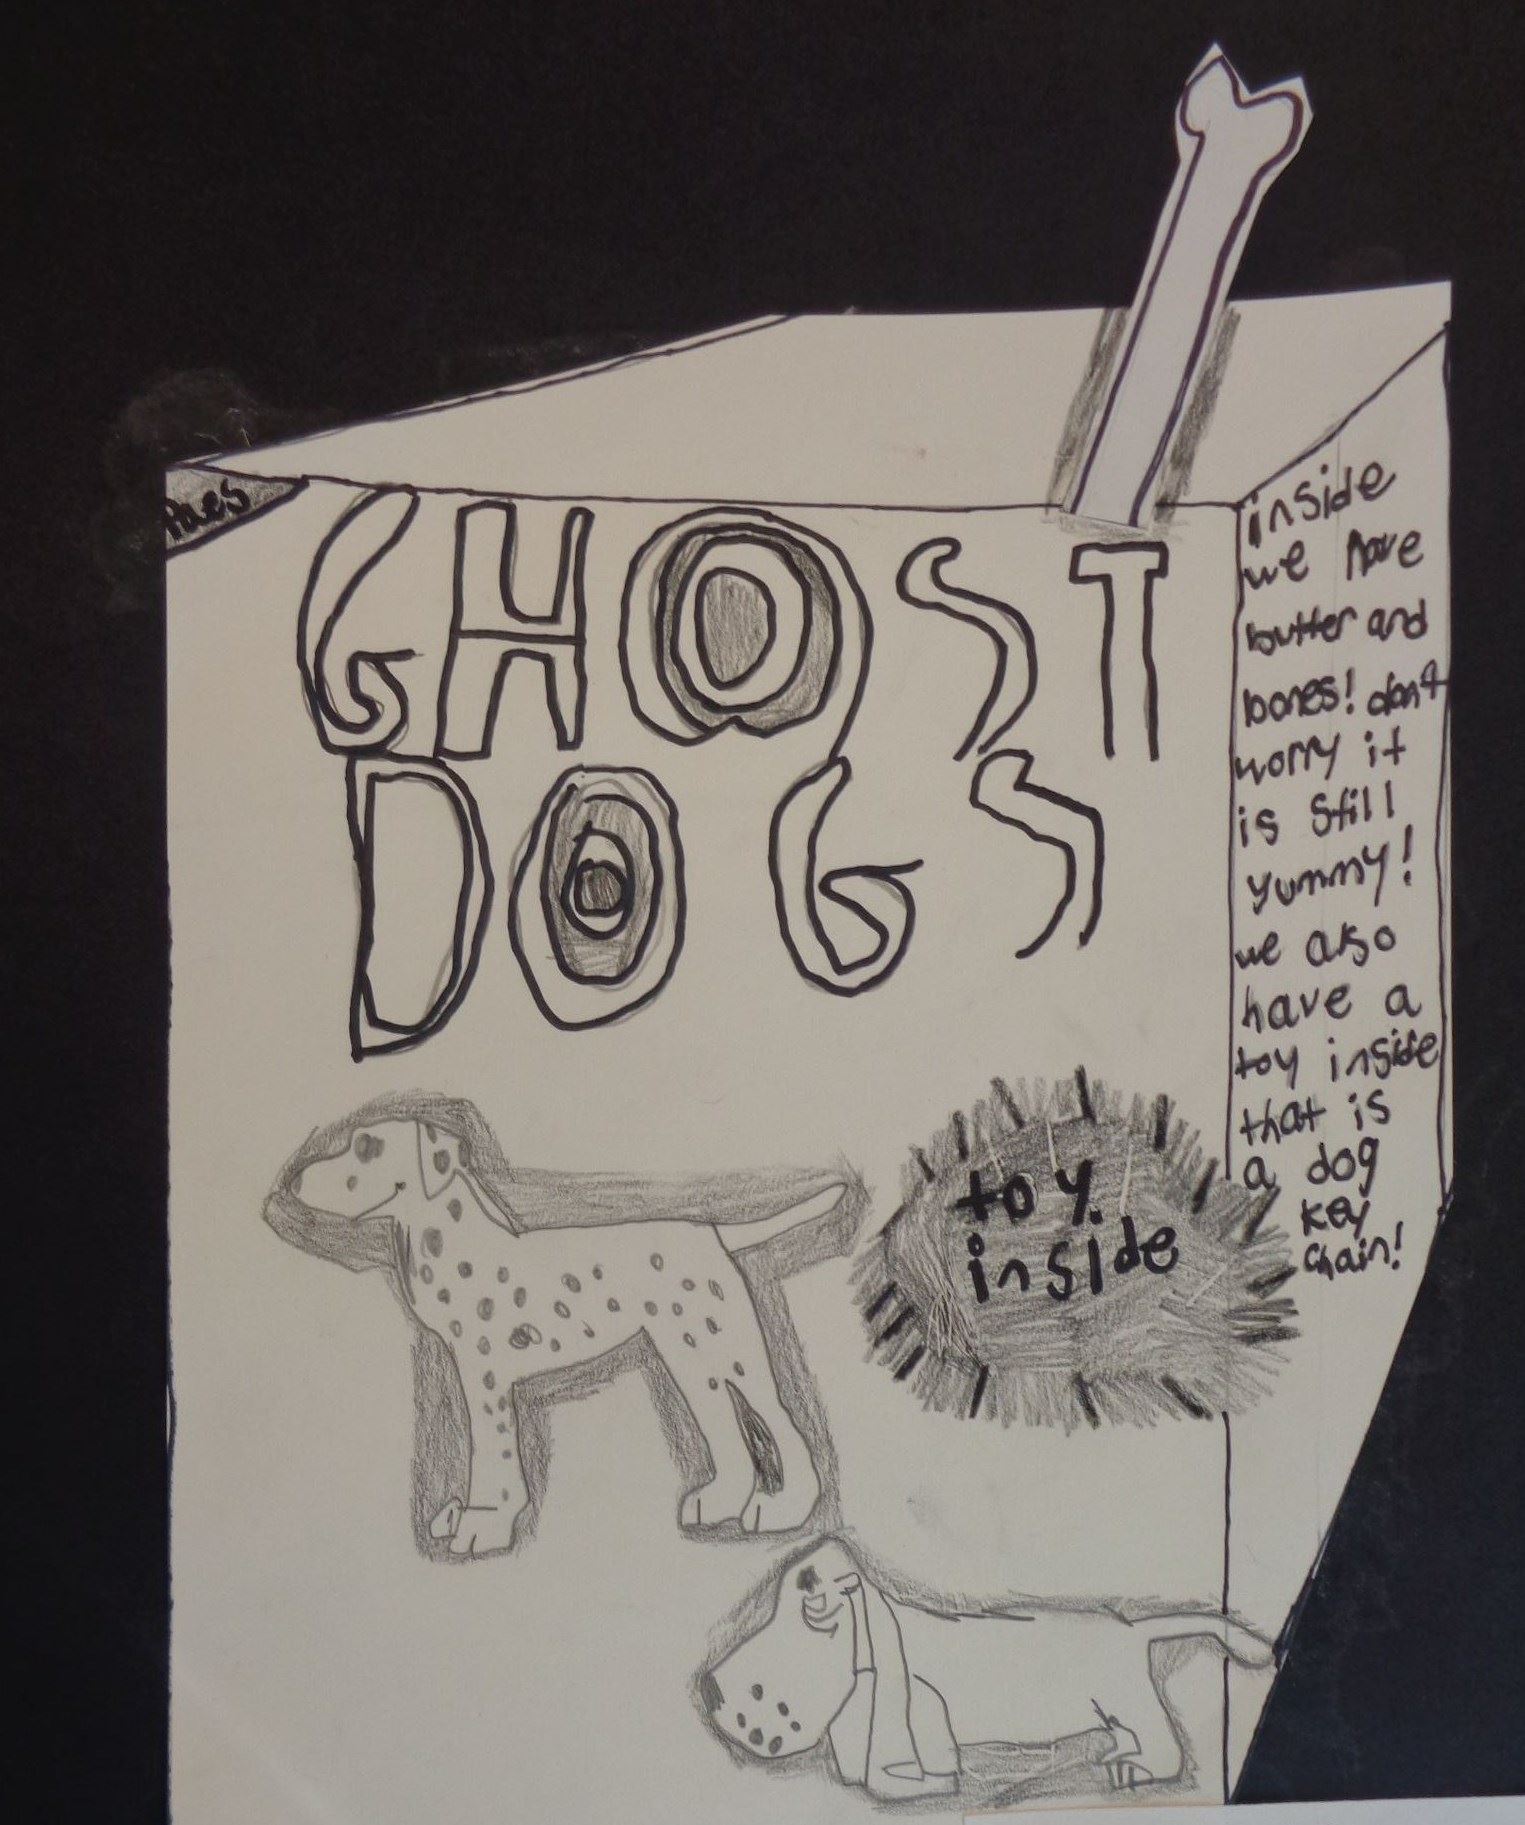 GHOST
DOGS
toy
inside
inside
we have
butter and
bones! don't
worry it
is still
yummy!
we also
have a
toy inside
that is
a dog
key
chain!